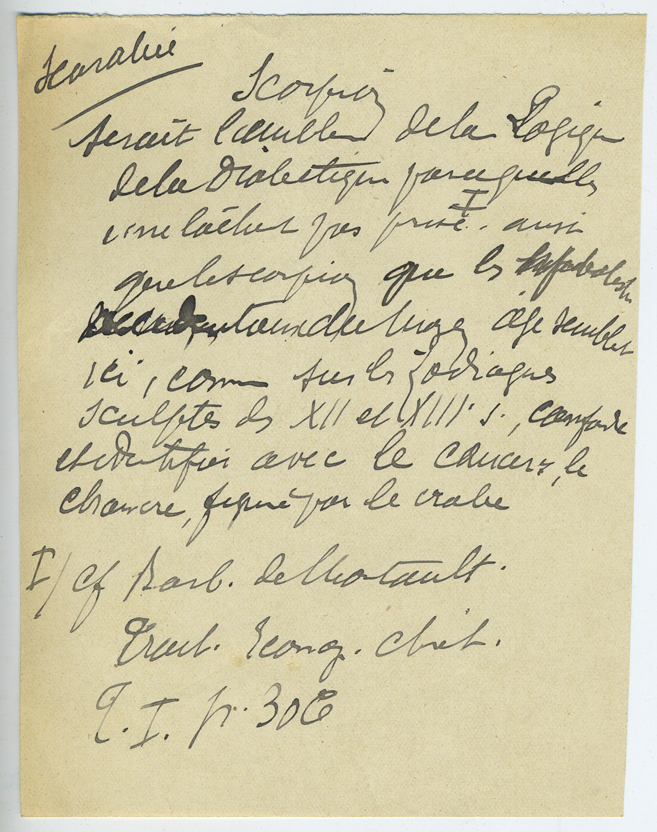 Scarabée
Scorpion
serait l'emblème de la Logique
de la Dialectique parce que elle
ne lâche pas prise. ainsi
I
que le scorpion que les symbolistes
du moyen âge semblent
ici, comme sur les Zodiaques
sculptés des XII et XIII s., confondre
et identifier avec le cancer, le
chancre, figuré par le crabe
I/ cf Barb. de Montault.
Trait. Iconog. chrét.
T. I. p. 306